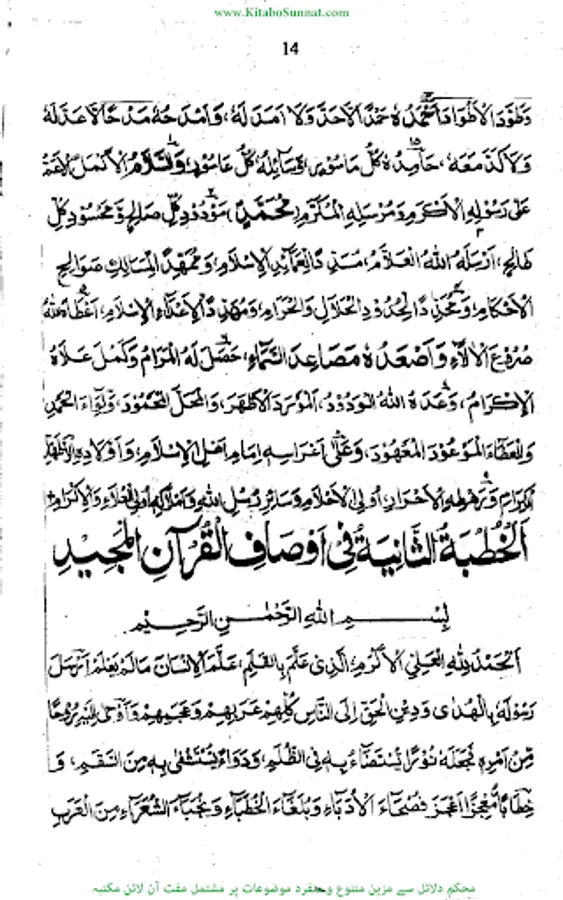 www.KitaboSunnat.com
14
وَطَوَّدَ الْأَطْوَادَ أَحْمَدُهٗ حَمْدًا لَا حَدَّ وَلَا أَمَدَ لَهٗ، وَأَمْدَحُهٗ مَدْحًا لَا عَدَّ لَهٗ
مَعَهٗ، حَامِدُهٗ كُلُّ وَسَائِلُهٗ كُلُّ وَالسَّلَامُ الْأَكْمَلُ
عَلٰى رَسُوْلِهِ الْأَكْرَمِ وَمُرْسَلِهِ الْمُكَرَّمِ (مُحَمَّدٍ) مَوْدُوْدِ كُلِّ صَالِحٍ وَّمَحْسُوْدِ كُلِّ
طَالِحٍ، أَرْسَلَهُ اللهُ الْعَلَّامُ، الْإِسْلَامِ، وَمُمَهِّدَ الْمَسَالِكِ صَوَالِحِ
الْأَحْكَامِ، لِحُدُوْدِ الْحَلَالِ وَالْحَرَامِ، الْإِسْلَامِ، أَعْطَاهُ اللهُ
وَأَصْعَدَهٗ مَصَاعِدَ السَّمَاءِ، حَصَّلَ لَهُ الْمَرَامَ وَكَمَّلَ
الْإِكْرَامَ، وَعَدَهُ اللهُ الْوَدُوْدُ، الْمَوْرِدَ الْأَطْهَرَ، وَالْمَحَلَّ الْمَحْمُوْدَ، وَلِوَاءَ الْحَمْدِ
وَالْعَطَاءَ الْمَوْعُوْدَ الْمَعْهُوْدَ، وَعَلٰى إِمَامِ أَهْلِ الْإِسْلَامِ، وَأَوْلَادِهِ
الْكِرَامِ الْأَحْرَارِ، أُولِي الْأَحْلَامِ وَسَائِرِ رُسُلِ اللهِ
اَلْخُطْبَةُ الثَّانِيَةُ فِيْ أَوْصَافِ الْقُرْآنِ الْمَجِيْدِ
بِسْمِ اللهِ الرَّحْمٰنِ الرَّحِيْمِ
اَلْحَمْدُ لِلّٰهِ الْعَلِيِّ الْأَكْرَمِ، الَّذِيْ عَلَّمَ بِالْقَلَمِ، عَلَّمَ الْإِنْسَانَ مَا لَمْ يَعْلَمْ أَرْسَلَ
رَسُوْلَهٗ بِالْهُدٰى وَدِيْنِ الْحَقِّ إِلَى النَّاسِ كُلِّهِمْ عَرَبِهِمْ وَعَجَمِهِمْ وَأَوْحٰى إِلَيْهِ رُوْحًا
مِّنْ أَمْرِهٖ فَجَعَلَهٗ نُوْرًا يُّسْتَضَاءُ بِهٖ فِي الظُّلَمِ، وَدَوَاءً يُّسْتَشْفٰى بِهٖ مِنَ السَّقَمِ، وَ
خِطَابًا مُّعْجِزًا أَعْجَزَ فُصَحَاءَ الْأُدَبَاءِ وَبُلَغَاءَ الْخُطَبَاءِ وَنُجَبَاءَ الشُّعَرَاءِ مِنَ الْعَرَبِ
محکم دلائل سے مزین متنوع و منفرد موضوعات پر مشتمل مفت آن لائن مکتبہ